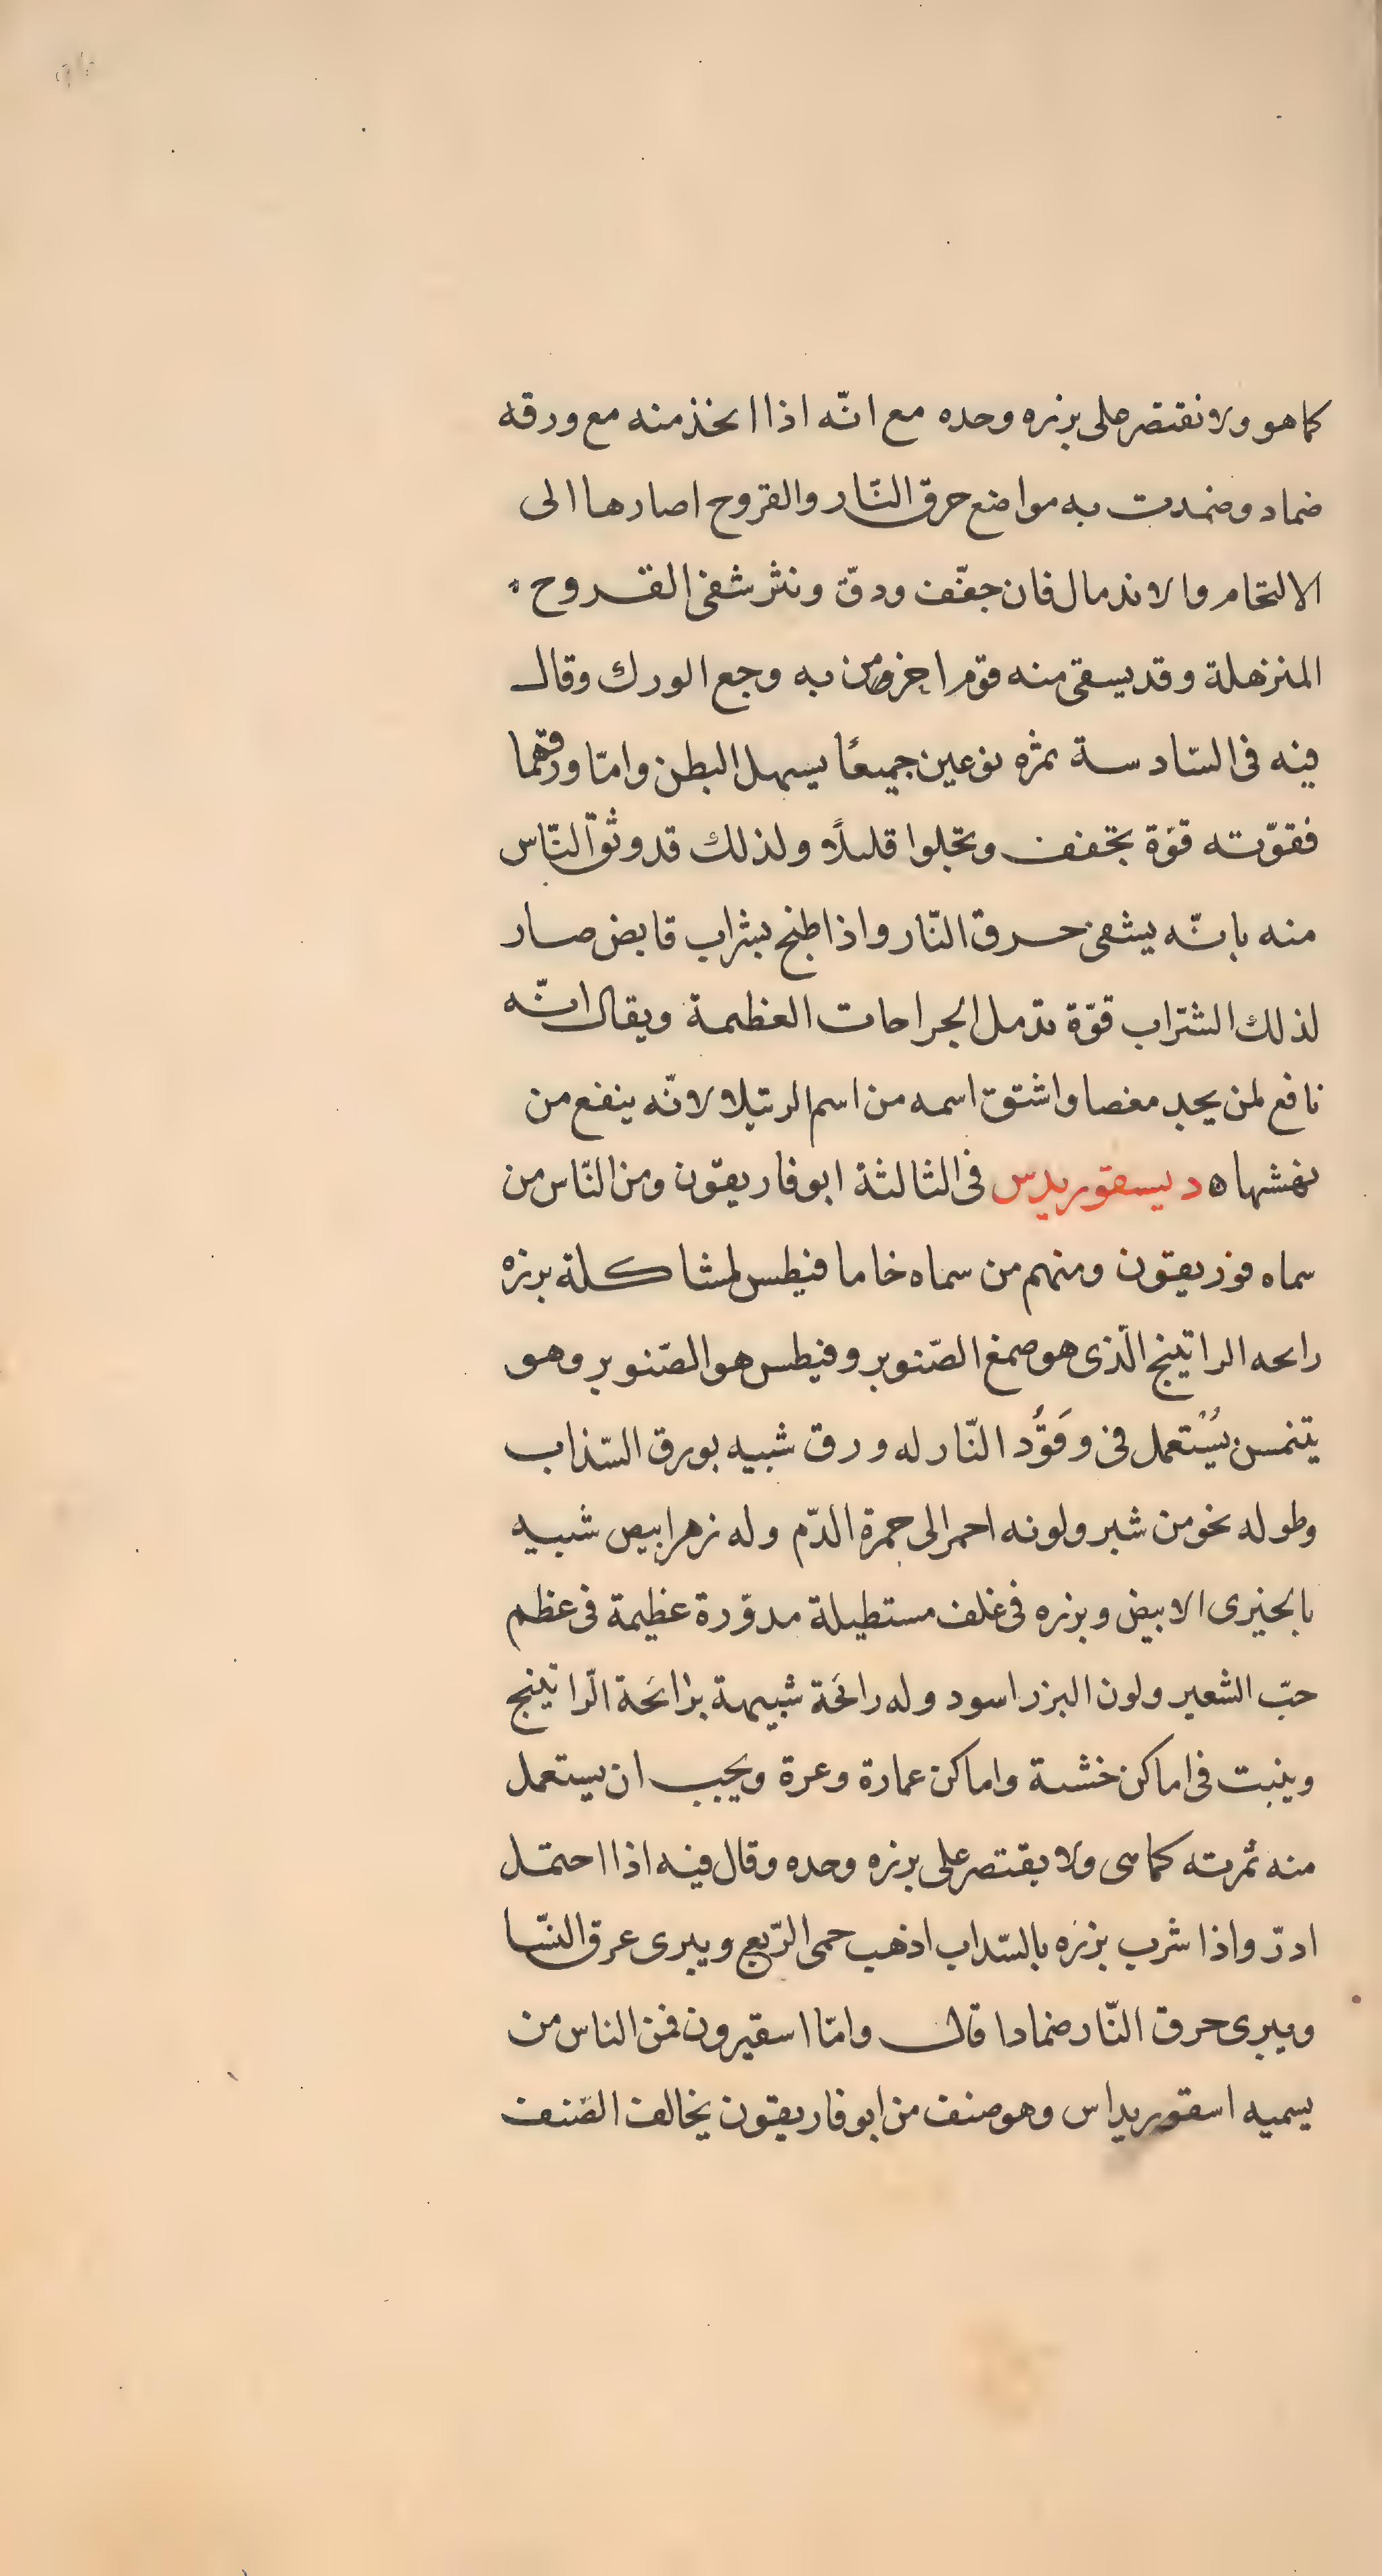 كما هو ولا نقتصر على بزره وحده مع انّه اذا اتخذ منه مع ورقه
ضماد وضمدت به مواضع حرق النّار والقروح اصارها الى
الالتحام والاندمال فان جفّف ودقّ ونثر شفى القروح
المترهلة وقد يسقى منه قوم اخرون من به وجع الورك وقال
فيه فى السّادسة ثمره نوعين جميعًا يسهل البطن وامّا ورقهما
فقوّته قوّة تجفف وتجلوا قليلًا ولذلك قد وثق النّاس
منه بانّه يشفى حرق النّار واذا طبخ بشراب قابض صار
لذلك الشّراب قوّة تدمل الجراحات العظيمة ويقال انّه
نافع لمن يجد مغصا واشتق اسمه من اسم الرتيلا لانّه ينفع من
نهشها ه ديسقوريدس فى الثالثة ابوفاريقّون ومن النّاس من
سماه فوريقون ومنهم من سماه خاما فنيطس لمشاكلة بزره
رايحه الراتينج الّذى هو صمغ الصّنوبر وفنيطس هو الصّنوبر وهو
يتنمس يُسْتعمل فى وَقُود النّار له ورق شبيه بورق السّذاب
وطوله نحو من شبر ولونه احمر الى حمرة الدّم وله زهر ابيض شبيه
بالخيرى الابيض وبزره فى غلف مستطيلة مدوّرة عظيمة فى عظم
حبّ الشعير ولون البزر اسود وله رائحة شبيهة برائحة الرّاتينج
وينبت فى اماكن خشنة واماكن عمارة وعرة ويجب ان يستعمل
منه ثمرته كما هى ولا يقتصر على بزره وحده وقال فيه اذا احتمل
ادرّ واذا شرب بزره بالسّداب اذهب حمى الرّبع ويبرى عرق النّسا
ويبرى حرق النّار ضمادا قال وامّا اسقيرون فمن الناس من
يسميه اسقوريداس وهو صنف من ابوفاريقون يخالف الصّنف